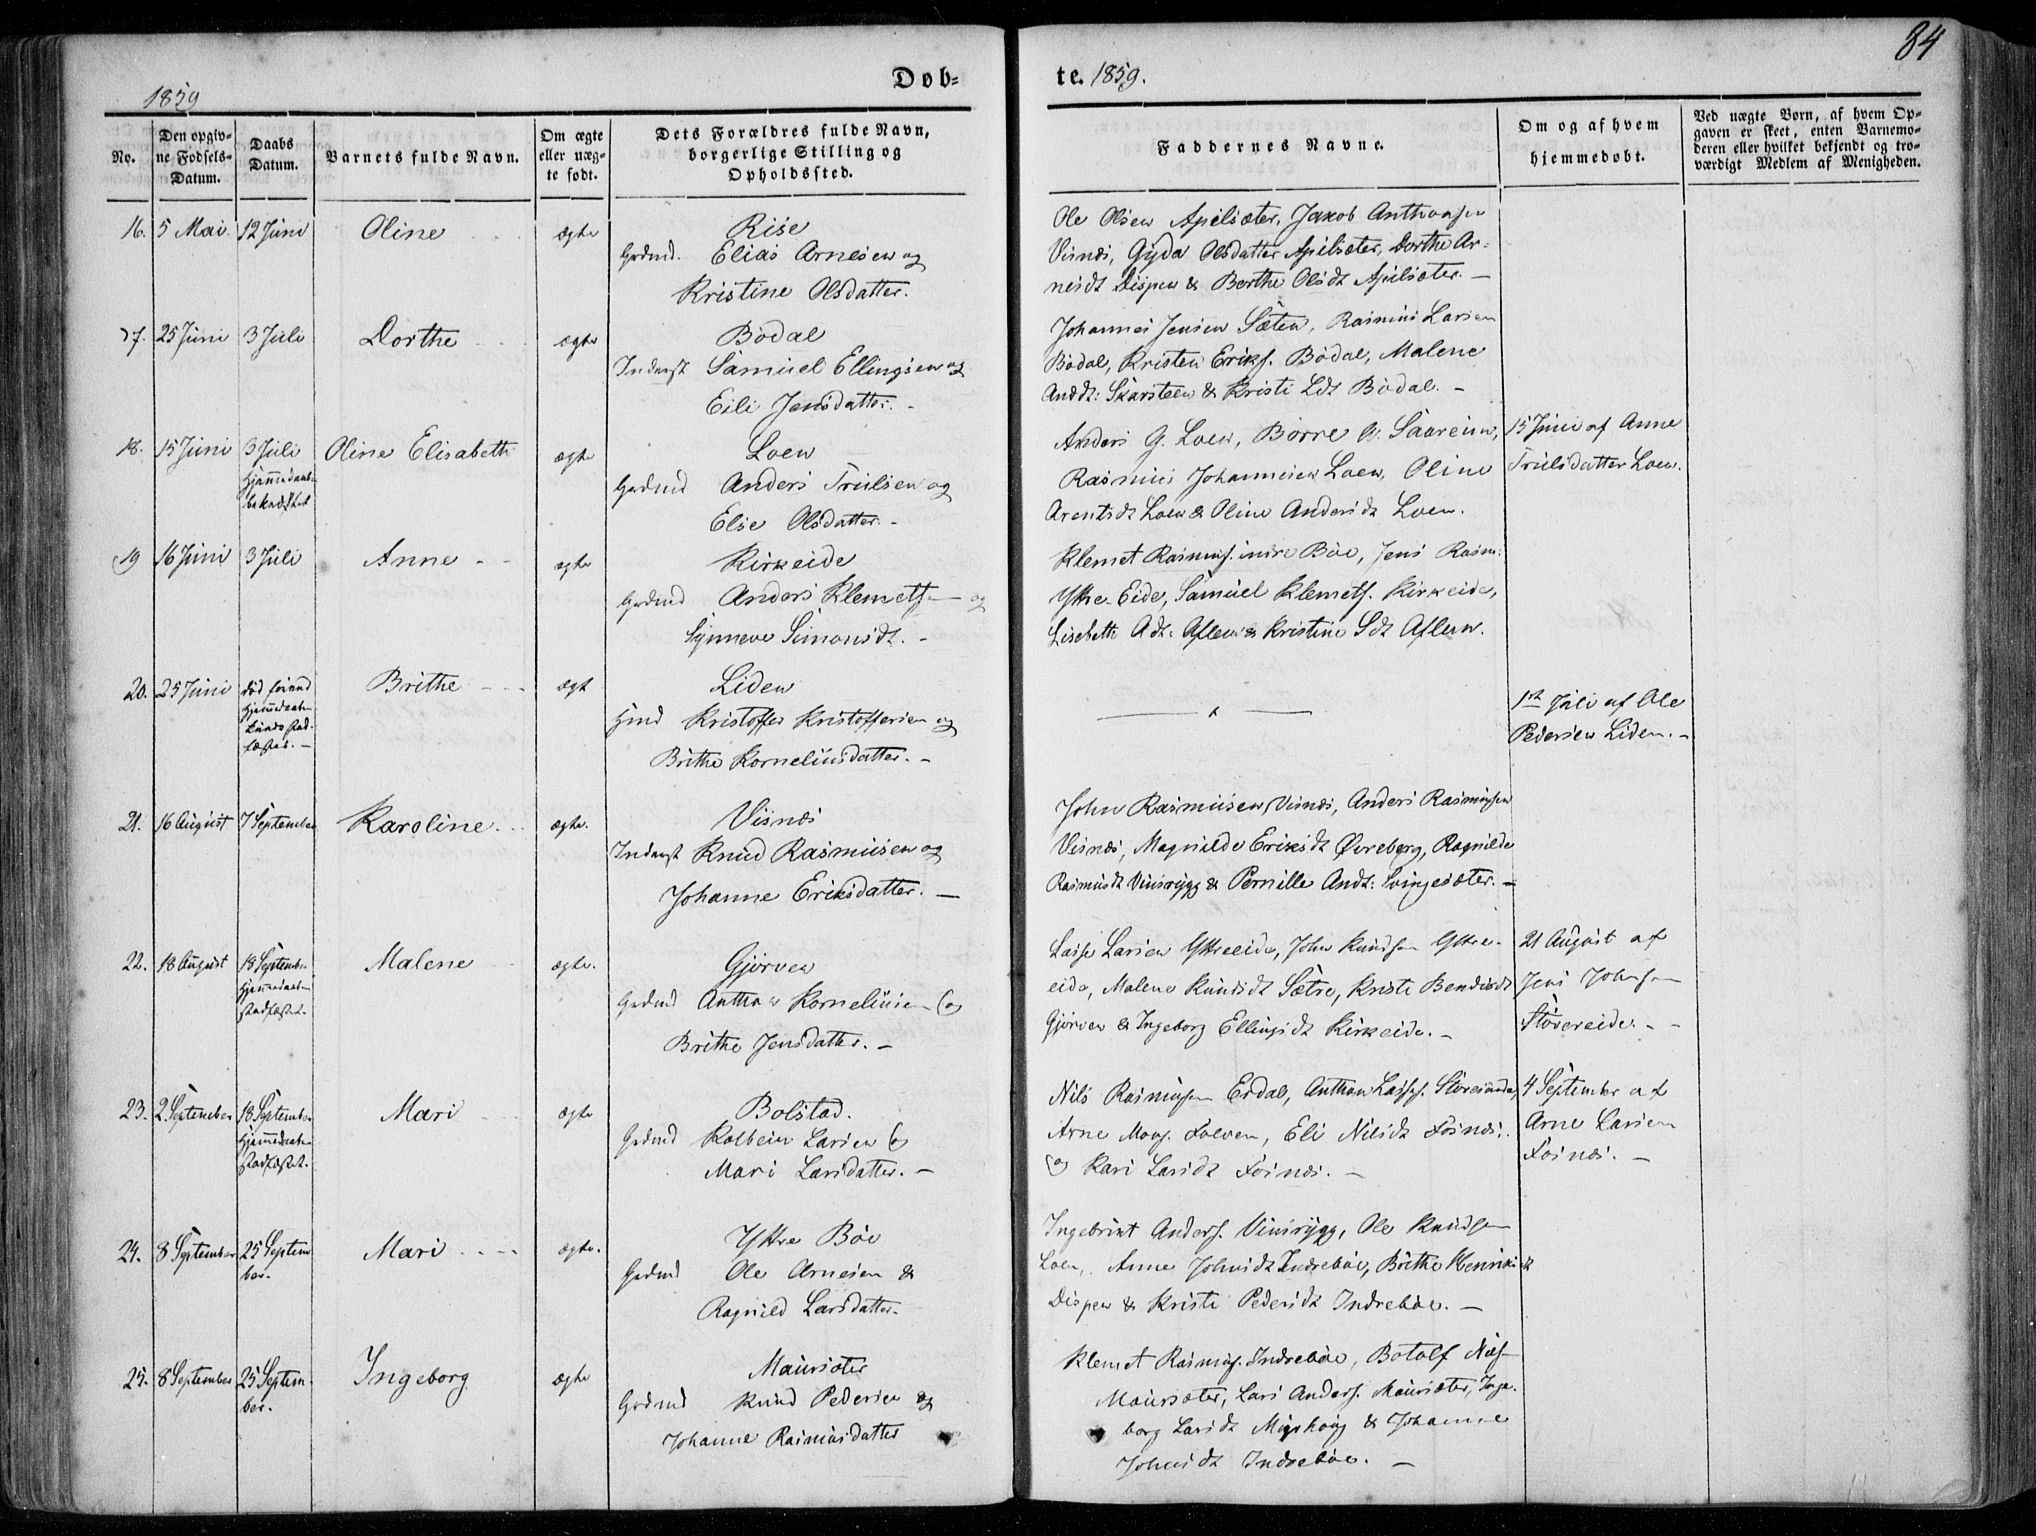 84
1859
Døb-
te. 1859.
No.
Den opgiv-
ne Fødsels-
Datum.
Daabs
Datum.
Barnets fulde Navn.
Om ægte
eller uæg-
te født.
Dets Forældres fulde Navn,
borgerlige Stilling og
Opholdssted.
Faddernes Navne.
Om og af hvem
hjemmedøbt.
Ved uægte Børn, af hvem Op-
gaven er skeet, enten Barnemo-
deren eller hvilket bekjendt og tro-
værdigt Medlem af Menigheden.
16. 5 Mai 12 Juni Oline ægte
Rise
Grdmd. Elias Arnesen og
Kristine Olsdatter.
Ole Olsen Apilsæter, Jakob Anthonsen
Visnæs, Gyda Olsdatter Apilsæter, Dorthe Ar-
nesdt Dispen & Berthe Olsdt Apilsæter. -
17. 25 Juni 3 Juli Dorthe ægte
Bødal
Inderst Samuel Ellingsen og
Eili Jensdatter. -
Johannes Jensen Sæten, Rasmus Larsen
Bødal, Kristen Eriks. Bødal, Malene
Anddt: Skarsteen & Kristi Ldt Bødal. -
18. 15 Juni 3 Juli Oline Elisabeth ægte
Hjemmedaaben
bekræftet
Loen
Grdmd Anders Trulsen og
Else Olsdatter. -
Anders G. Loen, Børre O. Saareim,
Rasmus Johannesen Loen, Oline
Arentsdt Loen & Oline Andersdt Loen.
15 Juni af Anne
Trulsdatter Loen.
19 16 Juni 3 Juli Anne ægte
Kirkeide
Grdmd Anders Klemets. og
Synneve Simonsdt. -
Klemet Rasmus. indre Bøe, Jens Rasm:
Yttre-Eide, Samuel Klemets. Kirkeide,
Lisebeth Adt: Aflem & Kristine Sdt Aflem.
20. 25 Juni død forind Brithe ægt
Hjemmedaaben
kunde stad-
fæstes. -
Liden
Hmd Kristoffer Kristoffersen og
Brithe Korneliusdatter. -
1st Juli af Ole
Pedersen Liden. -
21. 16 August 7 September Karoline. ægte.
Visnæs
Inderst Knud Rasmusen og
Johanne Eriksdatter. -
John Rasmusen Visnæs, Anders Rasmusen
Visnæs, Magnilde Eriksdt Øvreberg, Ragnilde
Rasmusdt Vinsrygg & Pernille Andt: Svingesæter. -
22. 18 August 18 September Malene ægte.
Hjemmedaaben
stadfæstet.
Gjørven
Grdmd Anthon Kornelius og
Brithe Jensdatter. -
Lasse Larsen Yttreeide, John Knudsen Yttre-
eide, Malene Knudsdt Sætre, Kristi Bendixdt
Gjørven & Ingeborg Ellingsdt Kirkeide. -
21 August af
Jens Johnsen
Støvereide. -
23. 2. September 18 September Mari ægte
Hjemmedaaben
stadfæstet.
Bolstad.
Grdmd Kolbein Larsen og
Mari Larsdatter. -
Nils Rasmusen Erdal, Anthon Lasses. Storesunde,
Arne Mons. Folven, Eli Nilsdt Fosnæs,
og Kari Larsdt Fosnæs. -
4 September af
Arne Larsen
Fosnæs. -
24. 8 September 25 Septem- Mari ægte.
ber.
Yttre Bøe
Grdmd Ole Arnesen &
Ragnild Larsdatter.
Ingebrigt Anders. Vinsrygg, Ole Knudsen
Loen, Anne Johnsdt Indrebøe, Brithe Henriksdt
Dispen & Kristi Pedersdt Indrebøe. -
25. 8 September 25 Septem- Ingeborg ægte
ber.
Maursæter
Grdmd Knud Pedersen og
Johanne Rasmusdatter
Klemet Rasmus. Indrebøe, Botolf
Maursæter, Lars Anders. Maursæter, Inge-
borg Larsdt & Johanne
Johnsdt Indrebøe. -